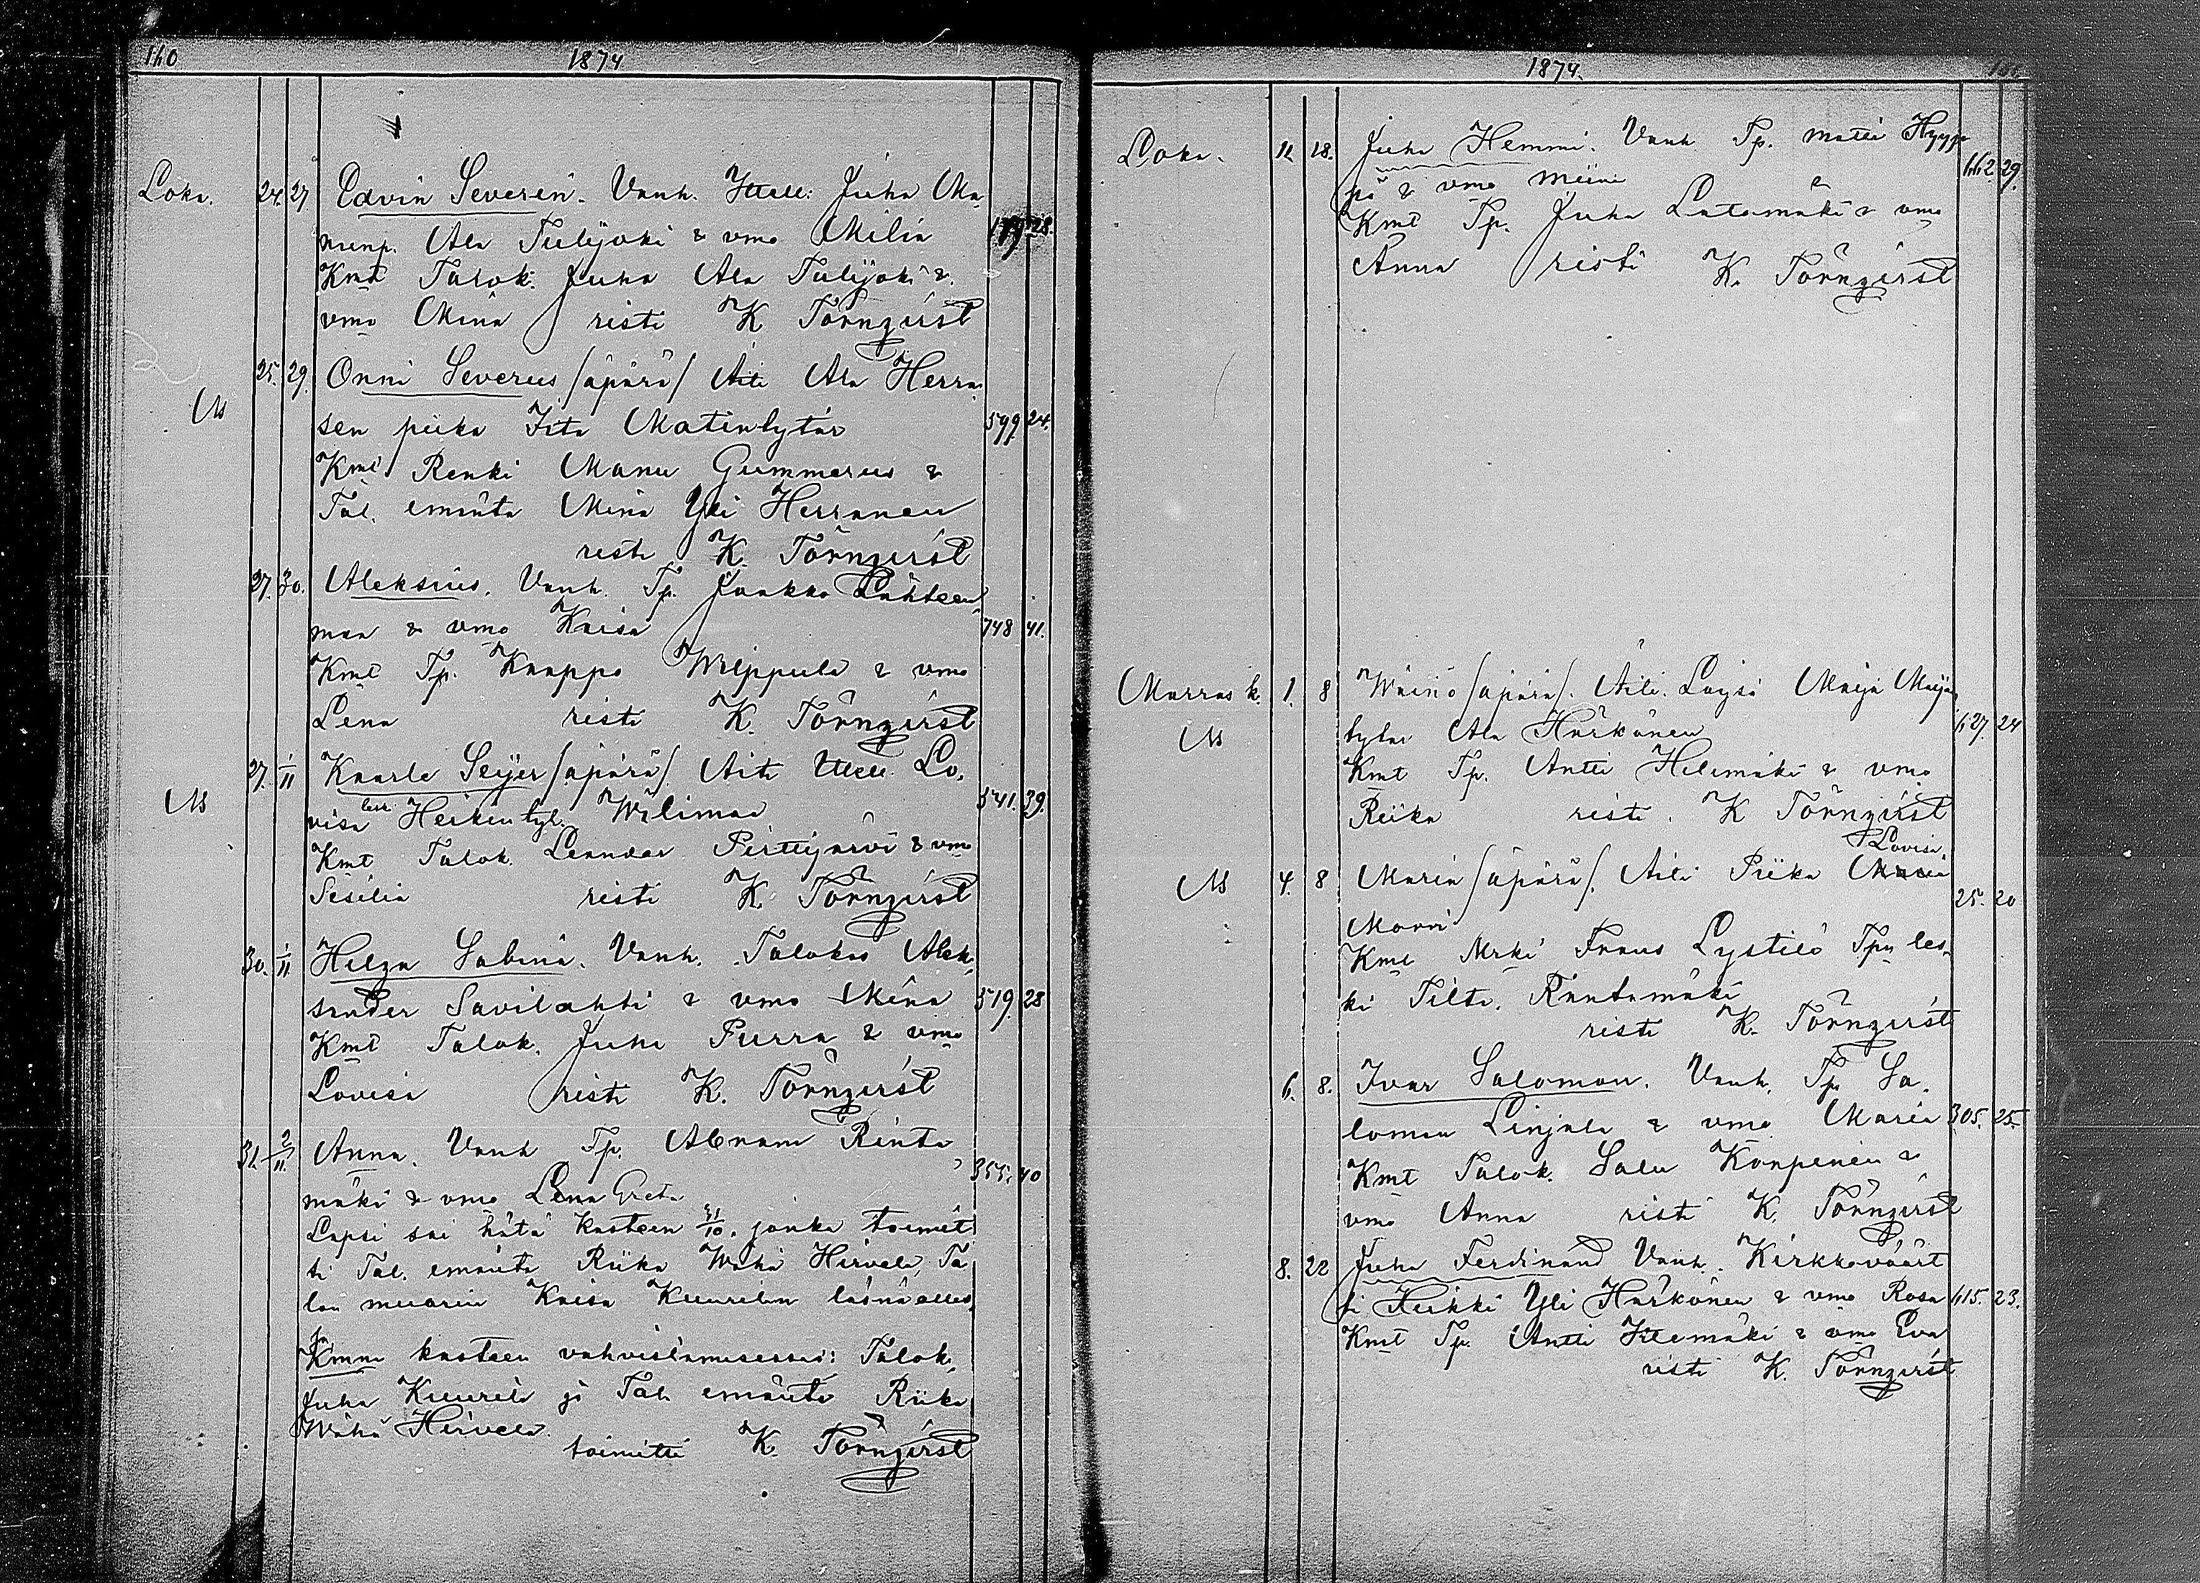 160 1874
Loka. 24. 27 Edvin Severin. Vanh. Itsell. Juha Ma
Ala Tulijoki & vmo Milia 28.
Kmt Talok. Juha Ala Tulijoki &
vmo Mina risti K Törnqvist
25. 29. Onni Severus /äpärä/ Äiti Ala Herra
sen piika Iita Matintytär 599 24.
Kmt Renki Manu Gummerus &
Tal. emäntä Mina Yli Herranen
risti K. Törnqvist
27. 30. Aleksius. Vanh. Tp. Jaakko Lähteen
maa & vmo Kaisa 748 41.
Kmt Tp. Kaappo Wilppula & vmo
Lena risti K. Törnqvist
27. 1/11 Kaarle Seijer /äpärä/ Äiti Itsell. Lo
visa Heikintyt. Wilimaa 541. 39.
Kmt Talok. Leander Pirttijärvi & vmo
Sesilia risti K. Törnqvist
30. 1/11 Hilga Sabina. Vanh. Talokas Alek
sander Savilahti & vmo Mina 519. 28
Kmt Talok. Juha Purra & vmo
Lovisa risti K. Törnqvist
31. 2/11 Anna. Vanh Tp. Abram Rinta
mäki & vmo Lena Greta 355. 40
Lapsi sai hätä kasteen 31/10. jonka toimit
ti Tal. emäntä Riika Wähä Hirvela, Ta
lan muorin Kaisa Kuurilan läsnä olles
Kmna kasteen vahvistamisessa: Talok.
Juha Kuurila ja Tal. emäntä Riika
Wähä Hirvela.
toimitti K. Törnqvist
1874.
Loka. 11. 18. Juha Hemmi. Vanh Tp. Matti Hyyp
pä & vmo Miina 662. 29.
Kmt Tp. Juha Latomäki & vmo
Anna risti K. Törnqvist
Marras k. 1. 8 Wäinö /äpärä/. Äiti. Loysä Maija Maija
tytär Ala Harkonen 627. 24
Kmt Tp. Antti Hilimäki & vmo
Riika risti. K Törnqvist
Lovisa
4. 8 Maria /äpärä/. Äiti Piika Maria
25. 20
Kmt Mrki Frans Lystilä Tpn les
ki Tilta. Rantamäki
risti K. Törnqvist
6. 8. Ivar Salomon. Vanh. Tp. Sa
lomon Linjala & vmo. Maria 305. 25.
Kmt Talok. Salu Konpenen &
vmo Anna risti K. Törnqvist
8. 22 Juha Ferdinand Vanh. Kirkkoväärt
ti Heikki Yli Harkonen & vmo Rosa 615. 23.
Kmt Tp. Antti Hilemäki & vmo Eva
risti K. Törnqvist